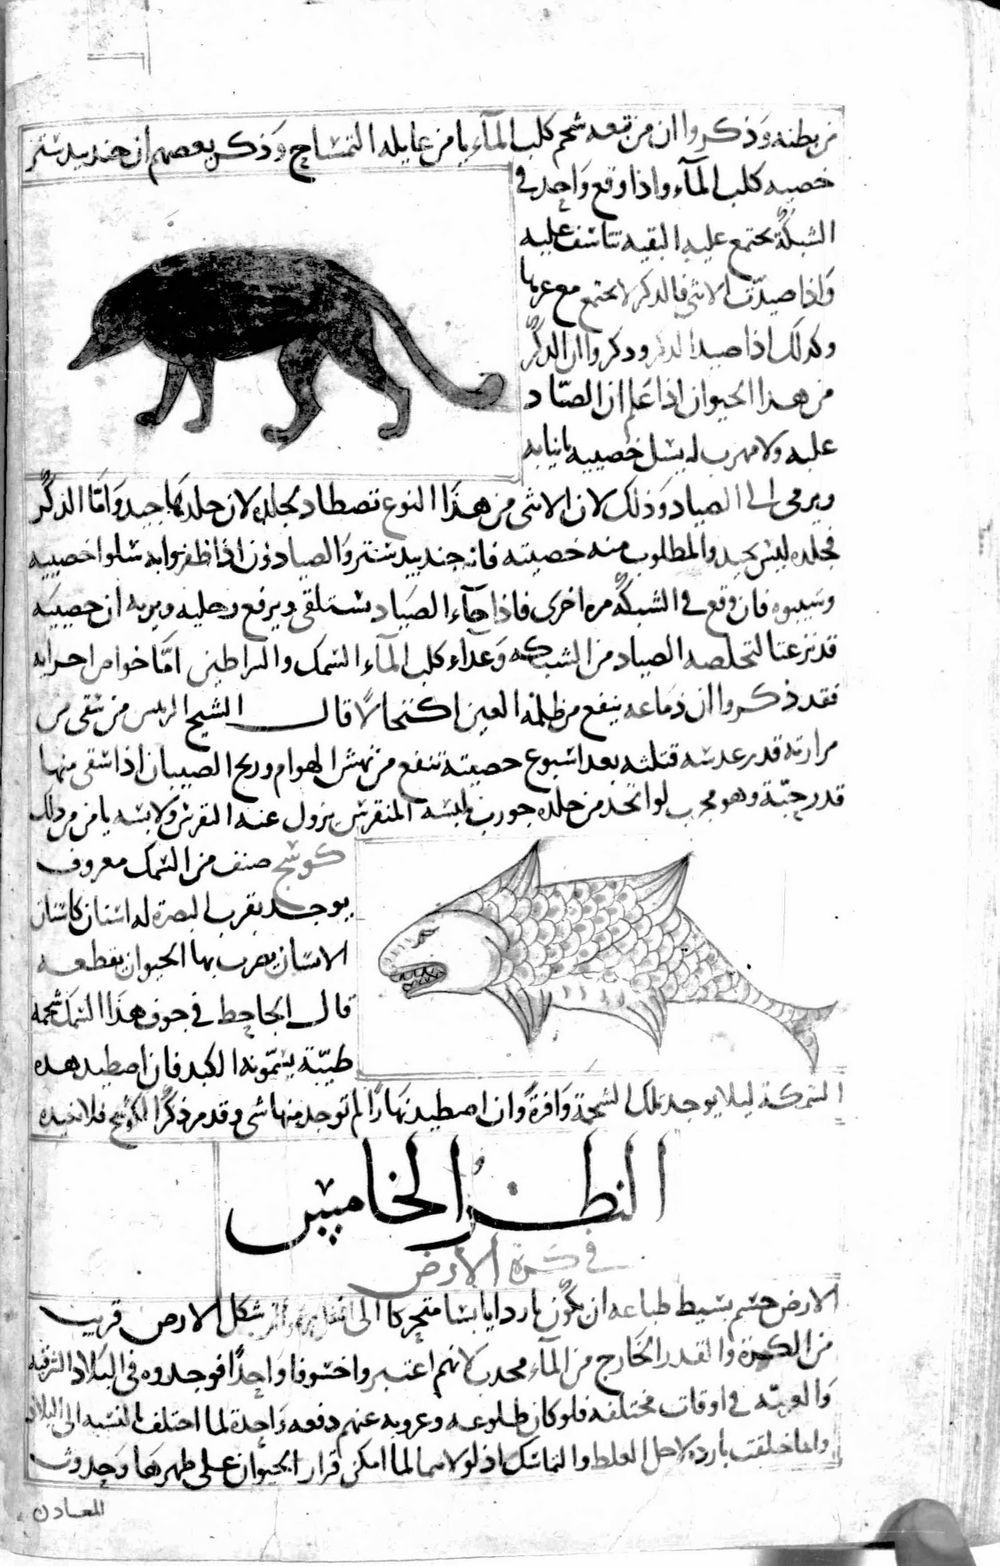 من بطنه وذكروا ان من معه شحم كلب الماء يامن غايله التمساح وذكر بعضهم ان جندبيدستر
خصيه كلب الماء واذا وقع واحد في
الشبكة يجتمع عليه البقيه تتاسف عليه
واذا صيدت الانثى فالذكر لا يجتمع مع غيرها
وكذلك اذا صيد الذكر وذكروا ان الذكر
من هذا الحيوان اذا علم ان الصياد
عليه ولا مهرب له يسل خصييه بانيابه
ويرمى الى الصياد وذلك لان الانثى من هذا النوع تصطاد لجلدها لان جلدها جيد واما الذكر
فجلده ليس بجيد والمطلوب منه خصيته فانه جندبيدستر والصيادون اذا ظفروا به سلوا خصييه
وسيبوه فان وقع في الشبكة مره اخرى فاذا جاء الصياد يستلقى ويرفع رجليه ويريه ان خصييه
قد نزعتا لتخلصه الصياد من الشبكه وغذاء كلب الماء السمك والسراطين اما خواص اجزايه
فقد ذكروا ان دماغه ينفع من ظلمة العين اكتحالا قال الشيخ الريس من سقى من
مرارته قدر عدسه قتلته بعد اسبوع خصيته تنفع من نهش الهوام وريح الصبيان اذا سقى منها
قدر حبة وهو مجرب لو اتخذ من جلده جورب يلبسه المنقرس يزول عنه النقرس ولابسه يامن من ذلك
كوسج صنف من السمك معروف
يوجد بقرب البصرة له اسنان كاسنان
الانسان يضرب بها الحيوان يقطعه
قال الجاحظ في جوف هذا السمك شحمه
طيبة يسمونها الكبد فان اصطيد هذه
السمكة ليلا يوجد تلك الشحمة وافرة وان اصطيد نهارا لم توجد منها شى وقد مر ذكر الكوسج فلا نعيده
النظر الخامس
في كرة الارض
الارض جسم بسيط طباعه ان يكون باردا يابسا متحركا الى شكل الارض قريب
من الكرة والقدر الخارج من الماء محدب لانهم اعتبروا خسوفا واحدا فوجدوه في البلاد الشرقيه
والغربيه في اوقات مختلفه فلو كان طلوعه وغروبه عنهم دفعه واحدة لما اختلف بالنسبه الى البلاد
وانما خلقت بارده لاجل الغلظ والتماسك اذ لولاهما لما امكن قرار الحيوان على ظهرها وحدوث
المعادن